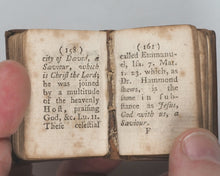 (158)
city of David, a
Saviour, which
is Christ the Lord;
he was joined
by a multitude
of the heavenly
Host, praising
God, &c. Lu. 11.
These celestial
(161)
called Emmanu-
el, Isa. 7. Mat.
1. 23. which, as
Dr. Hammond
shews, is the
same in sub-
stance as Jesus,
God with us, a
Saviour.
F